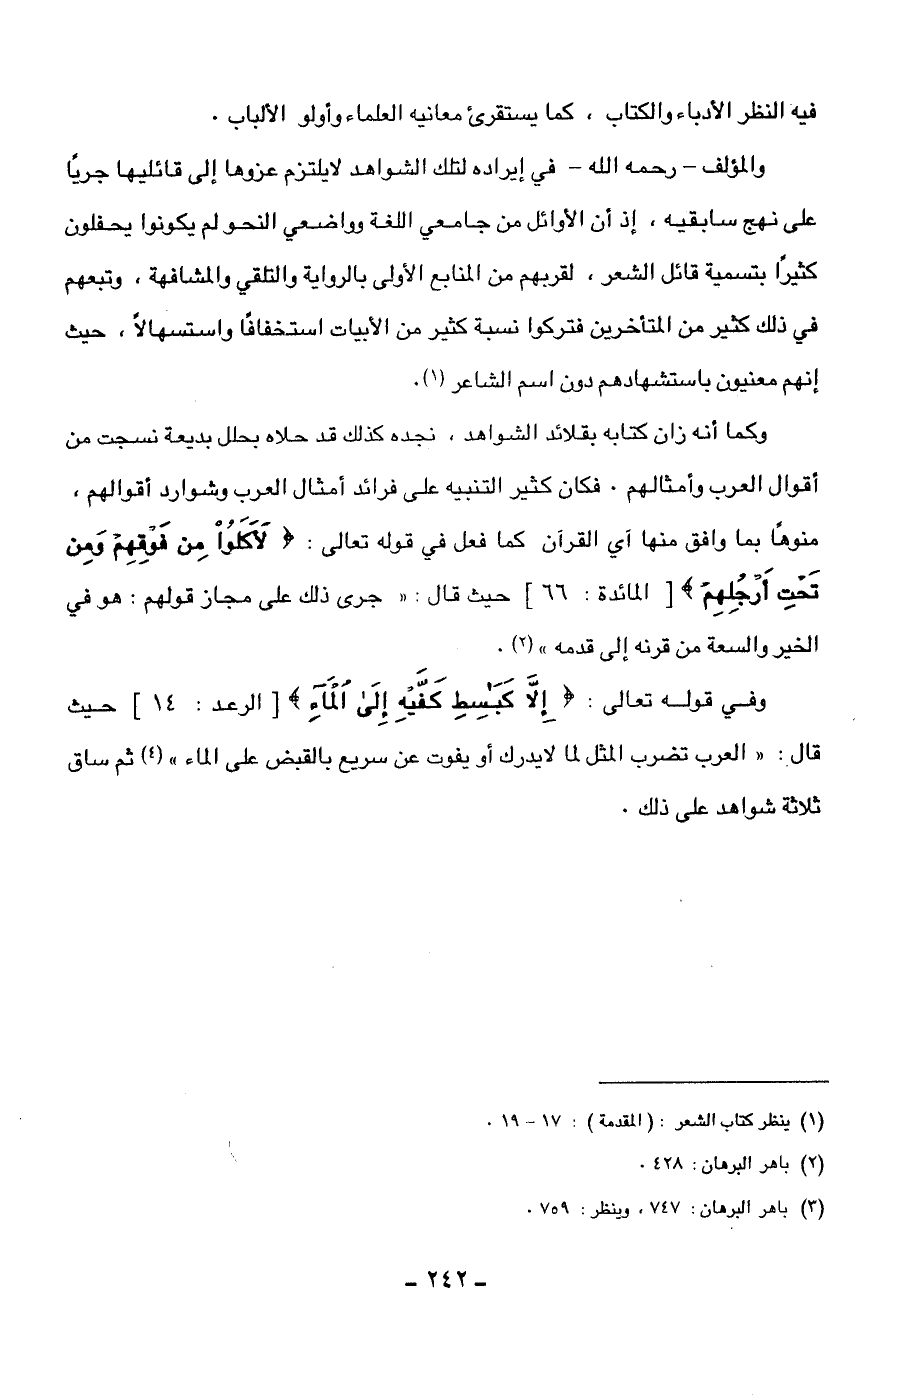 فيه النظر الأدباء والكتاب ، كما يستقرئ معانيه العلماء وأولو الألباب .
والمؤلف – رحمه الله – في إيراده لتلك الشواهد لايلتزم عزوها إلى قائليها جريًا
على نهج سابقيه ، إذ أن الأوائل من جامعي اللغة وواضعي النحو لم يكونوا يحفلون
كثيرًا بتسمية قائل الشعر ، لقربهم من المنابع الأولى بالرواية والتلقي والمشافهة ، وتبعهم
في ذلك كثير من المتأخرين فتركوا نسبة كثير من الأبيات استخفافًا واستسهالاً ، حيث
إنهم معنيون باستشهادهم دون اسم الشاعر (١).
وكما أنه زان كتابه بقلائد الشواهد ، نجده كذلك قد حلاه بحلل بديعة نسجت من
أقوال العرب وأمثالهم . فكان كثير التنبيه على فرائد أمثال العرب وشوارد أقوالهم ،
منوهاً بما وافق منها آي القرآن كما فعل في قوله تعالى : ﴿ لَأَكَلُوا۟ مِن فَوْقِهِمْ وَمِن
تَحْتِ أَرْجُلِهِمْ ﴾ [ المائدة : ٦٦ ] حيث قال : « جرى ذلك على مجاز قولهم : هو في
الخير والسعة من قرنه إلى قدمه » (٢) .
وفي قوله تعالى : ﴿ إِلَّا كَبَٰسِطِ كَفَّيْهِ إِلَى ٱلْمَآءِ ﴾ [ الرعد : ١٤ ] حيث
قال : « العرب تضرب المثل لما لايدرك أو يفوت عن سريع بالقبض على الماء » (٤) ثم ساق
ثلاثة شواهد على ذلك .
(١) ينظر كتاب الشعر : ( المقدمة ) : ١٧ – ١٩ .
(٢) باهر البرهان : ٤٢٨ .
(٣) باهر البرهان : ٧٤٧ ، وينظر : ٧٥٩ .
– ٢٤٢ –